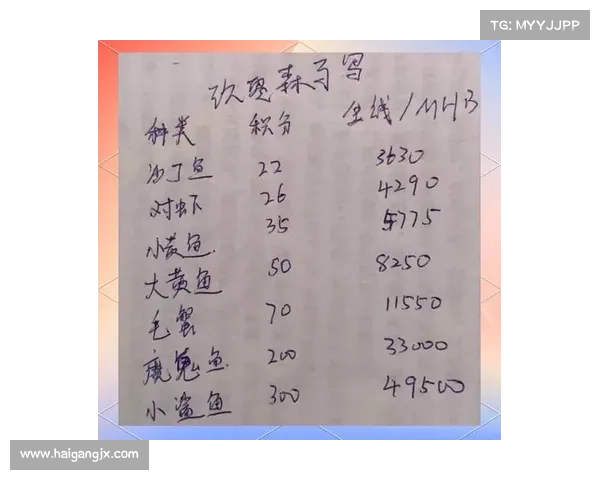 TG: MYYJJPP
玖恩森手写
种类 积分 金钱/MHB
沙丁鱼 22 3630
对虾 26 4290
小黄鱼 35 5775
大黄鱼 50 8250
毛蟹 70 11550
魔鬼鱼 200 33000
小鲨鱼 300 49500
www.haigangjx.com